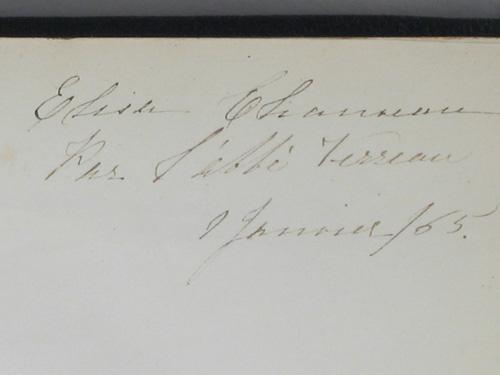 Elisa Chauveau
Par l'abbé Verreau
1 Janvier /65.